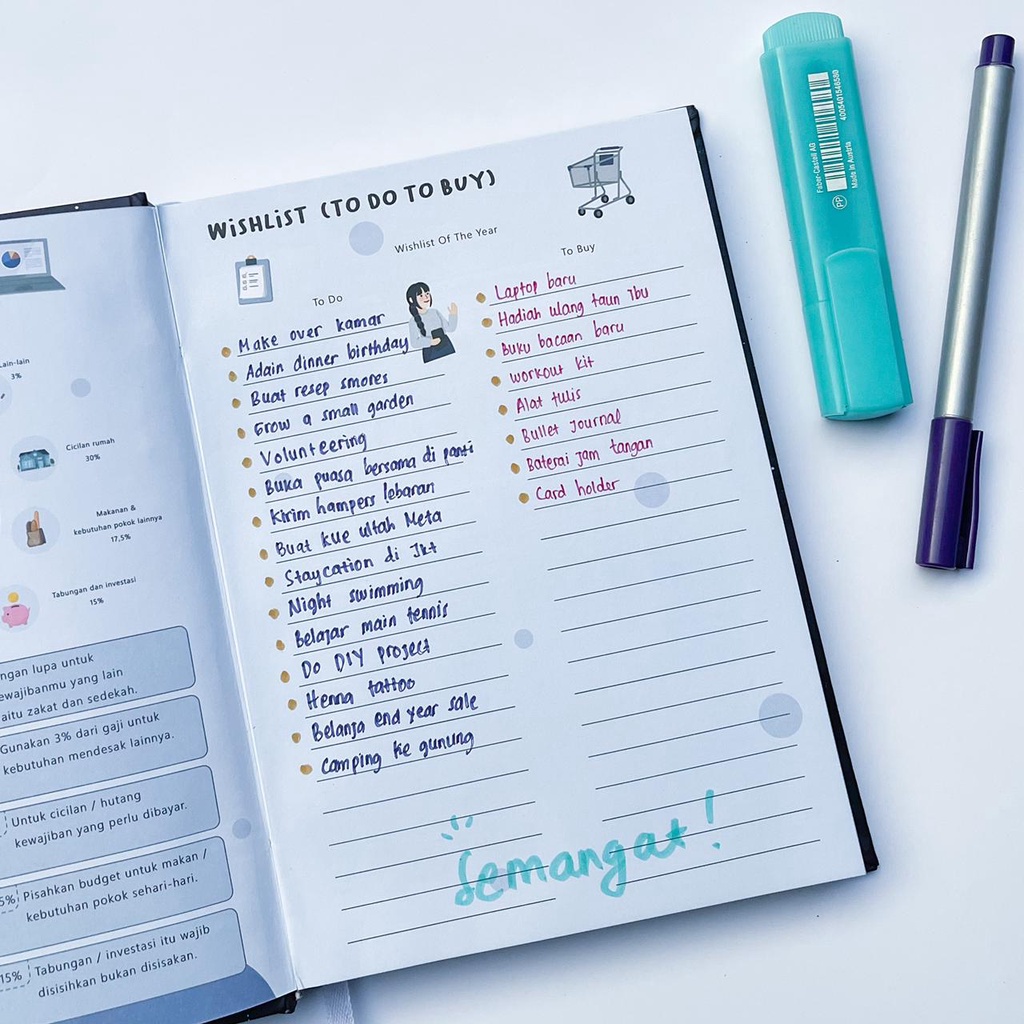 Lain-lain
3%
Cicilan rumah
30%
Makanan &
kebutuhan pokok lainnya
17,5%
Tabungan dan investasi
15%
ngan lupa untuk
ewajibanmu yang lain
aitu zakat dan sedekah.
Gunakan 3% dari gaji untuk
kebutuhan mendesak lainnya.
Untuk cicilan / hutang
kewajiban yang perlu dibayar.
5% Pisahkan budget untuk makan /
kebutuhan pokok sehari-hari.
15% Tabungan / investasi itu wajib
disisihkan bukan disisakan.
WiSHLiST (TO DO TO BUY)
Wishlist Of The Year
To Do
Make over kamar
Adain dinner birthday
Buat resep smores
Grow a small garden
Volunteering
Buka puasa bersama di panti
Kirim hampers lebaran
Buat kue ultah Meta
Staycation di Jkt
Night swimming
Belajar main tennis
Do DIY project
Henna tattoo
Belanja end year sale
Camping ke gunung
To Buy
Laptop baru
Hadiah ulang taun Ibu
Buku bacaan baru
workout kit
Alat tulis
Bullet Journal
Baterai jam tangan
Card holder
Semangat!
Faber-Castell AG
Made in Austria
4005401546580
PP